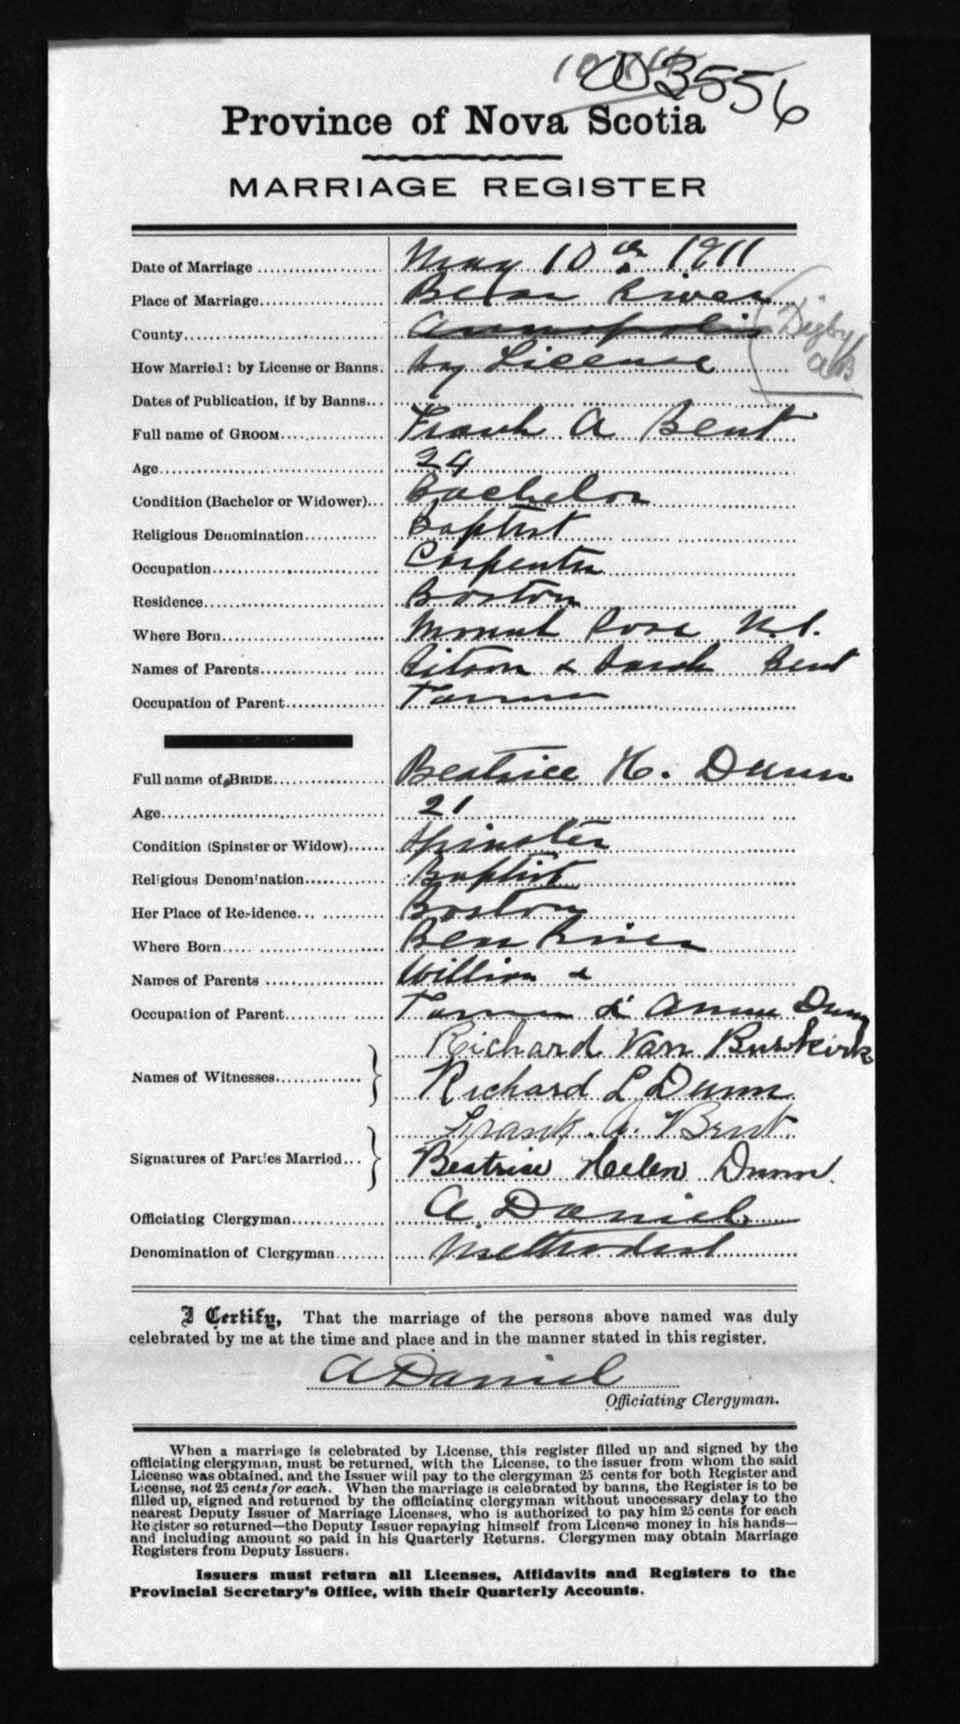 003556
Province of Nova Scotia
MARRIAGE REGISTER
Date of Marriage ... May 10th 1911
Place of Marriage... Bear River
County... Annapolis Digby
How Married: by License or Banns. by License
Dates of Publication, if by Banns...
Full name of GROOM... Frank A Bent
Age... 24
Condition (Bachelor or Widower)... Bachelor
Religious Denomination... Baptist
Occupation... Carpenter
Residence... Boston
Where Born... Mount Rose N.S.
Names of Parents... & Sarah Bent
Occupation of Parent... Farmer
Full name of BRIDE... Beatrice H. Dunn
Age... 21
Condition (Spinster or Widow)... Spinster
Religious Denomination... Baptist
Her Place of Residence... Boston
Where Born... Bear River
Names of Parents ... William &
Occupation of Parent... Farmer & Annie Dunn
Richard Van Buskirk
Names of Witnesses... }
Richard L Dunn
Frank A. Bent
Signatures of Parties Married... }
Beatrice Helen Dunn.
Officiating Clergyman... A. Daniel
Denomination of Clergyman... Methodist
I Certify, That the marriage of the persons above named was duly
celebrated by me at the time and place and in the manner stated in this register.
A Daniel
Officiating Clergyman.
When a marriage is celebrated by License, this register filled up and signed by the
officiating clergyman, must be returned, with the License, to the issuer from whom the said
License was obtained, and the Issuer will pay to the clergyman 25 cents for both Register and
License, not 25 cents for each. When the marriage is celebrated by banns, the Register is to be
filled up, signed and returned by the officiating clergyman without unecessary delay to the
nearest Deputy Issuer of Marriage Licenses, who is authorized to pay him 25 cents for each
Register so returned—the Deputy Issuer repaying himself from License money in his hands—
and including amount so paid in his Quarterly Returns. Clergymen may obtain Marriage
Registers from Deputy Issuers.
Issuers must return all Licenses, Affidavits and Registers to the
Provincial Secretary's Office, with their Quarterly Accounts.